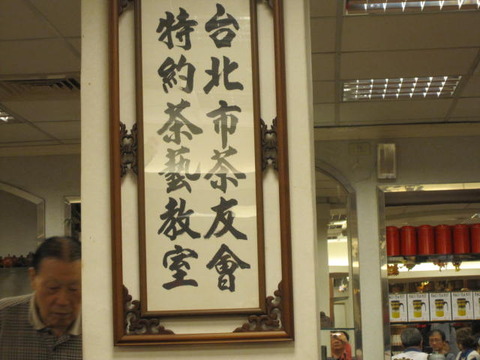 台北市茶友會
特約茶藝教室